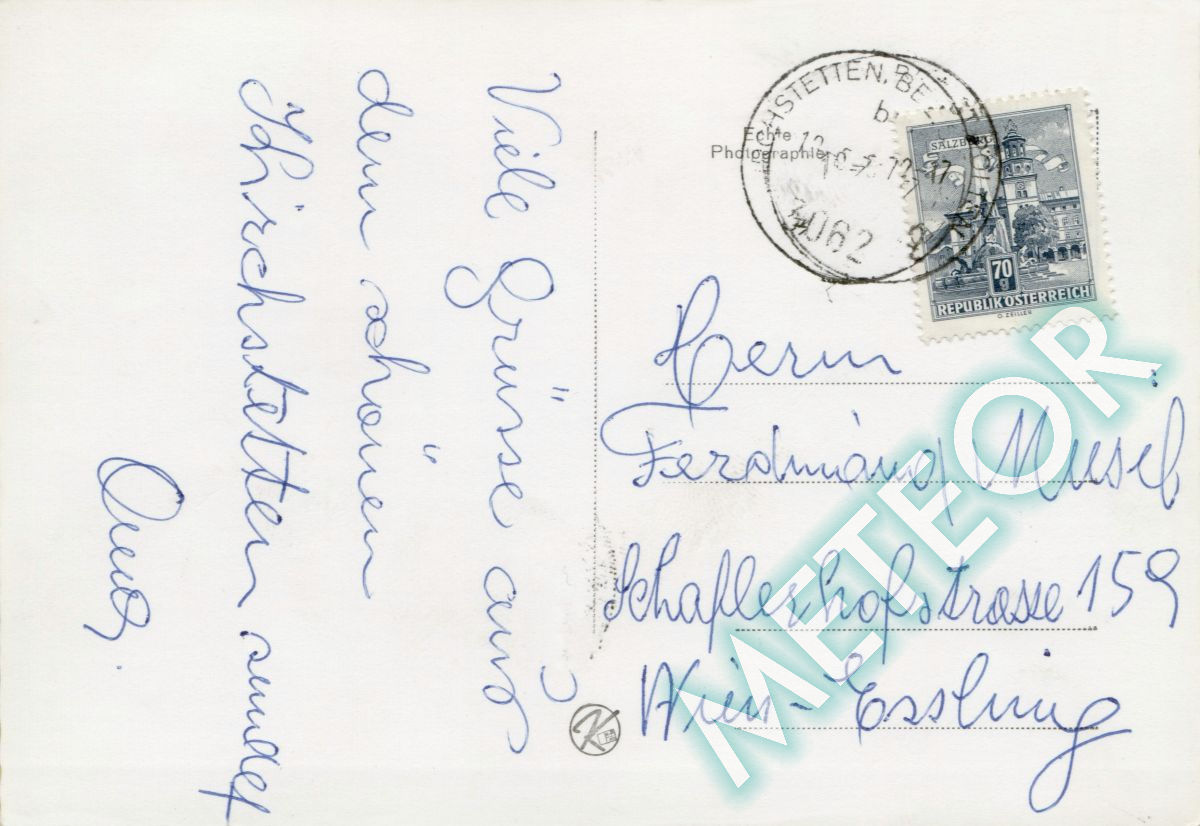 Viele Grüsse aus
dem schönen
Kirchstetten sendet
Echte
Photographie
SALZBURG
70
g
REPUBLIK ÖSTERREICH
O. ZEILLER
3062
Herrn
Ferdinand
Schaflerhofstrasse 159
Wien-Essling
METEOR
K